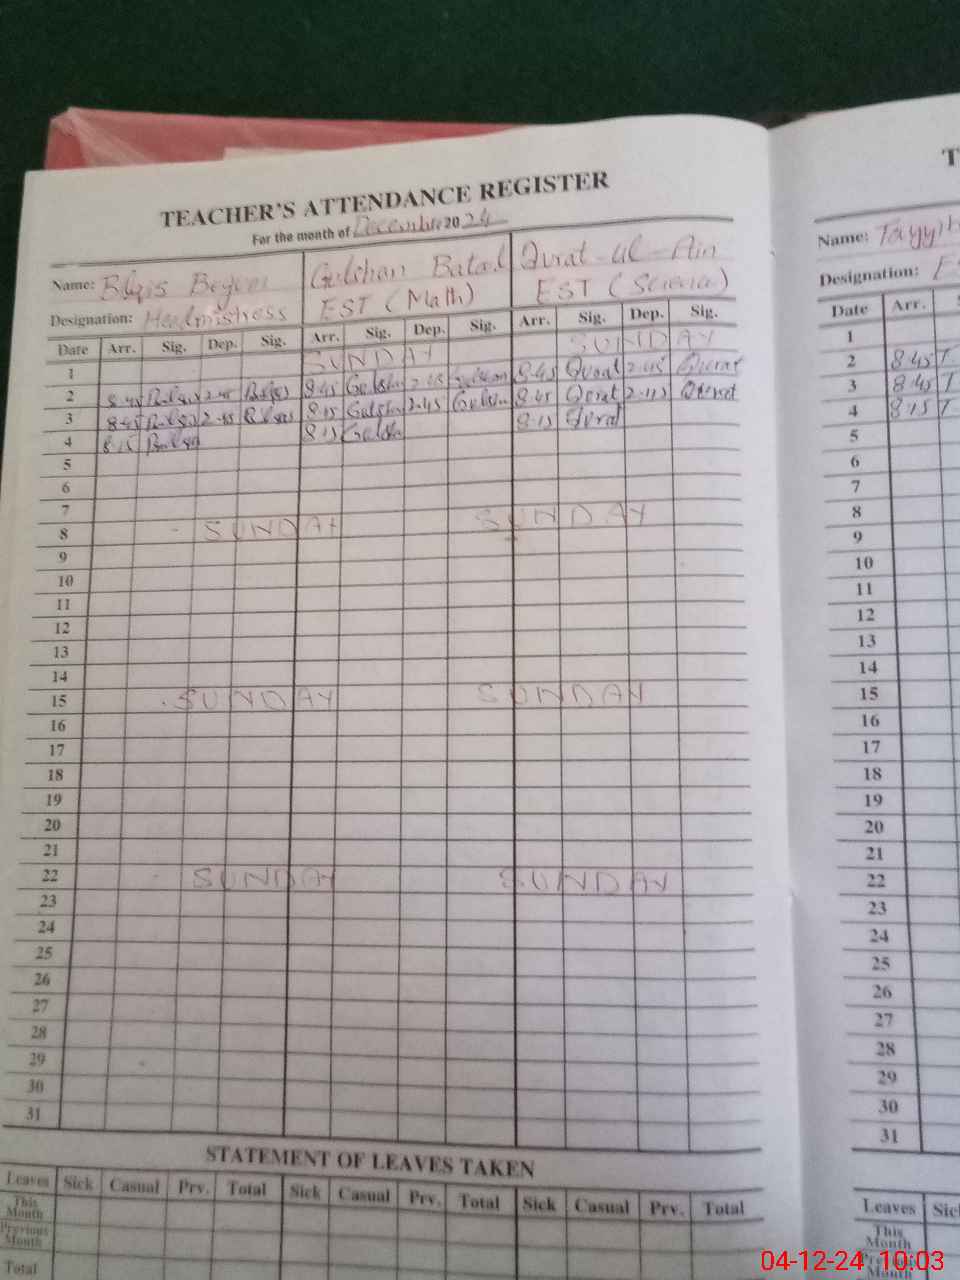 TEACHER'S ATTENDANCE REGISTER
For the month of December 2024
Name: Blqis Begum Gulshan Batool Qurat-ul-Ain
Designation: Headmistress EST (Math) EST (Science)
Date Arr. Sig. Dep. Sig. Arr. Sig. Dep. Sig. Arr. Sig. Dep. Sig.
1 SUNDAY SUNDAY
2 8:45 2:45 8:45 Gulshan 2:45 Gulshan 8:45 Qurat 2:45 Qurat
3 8:45 2:45 8:15 Gulshan 2:45 Gulshan 8:45 Qurat 2:45 Qurat
4 8:15 8:15 Gulshan 8:15 Qurat
5
6
7
8 SUNDAY SUNDAY
9
10
11
12
13
14
15 SUNDAY SUNDAY
16
17
18
19
20
21
22 SUNDAY SUNDAY
23
24
25
26
27
28
29
30
31
STATEMENT OF LEAVES TAKEN
Leaves Sick Casual Prv. Total Sick Casual Prv. Total Sick Casual Prv. Total
This Month
Previous Month
Total
T
Name:
Designation: E
Date Arr. S
1
2 8:45 T
3 8:45 T
4 8:15 T
5
6
7
8
9
10
11
12
13
14
15
16
17
18
19
20
21
22
23
24
25
26
27
28
29
30
31
Leaves Sic
This Month
Previous Month
Total
04-12-24 10:03